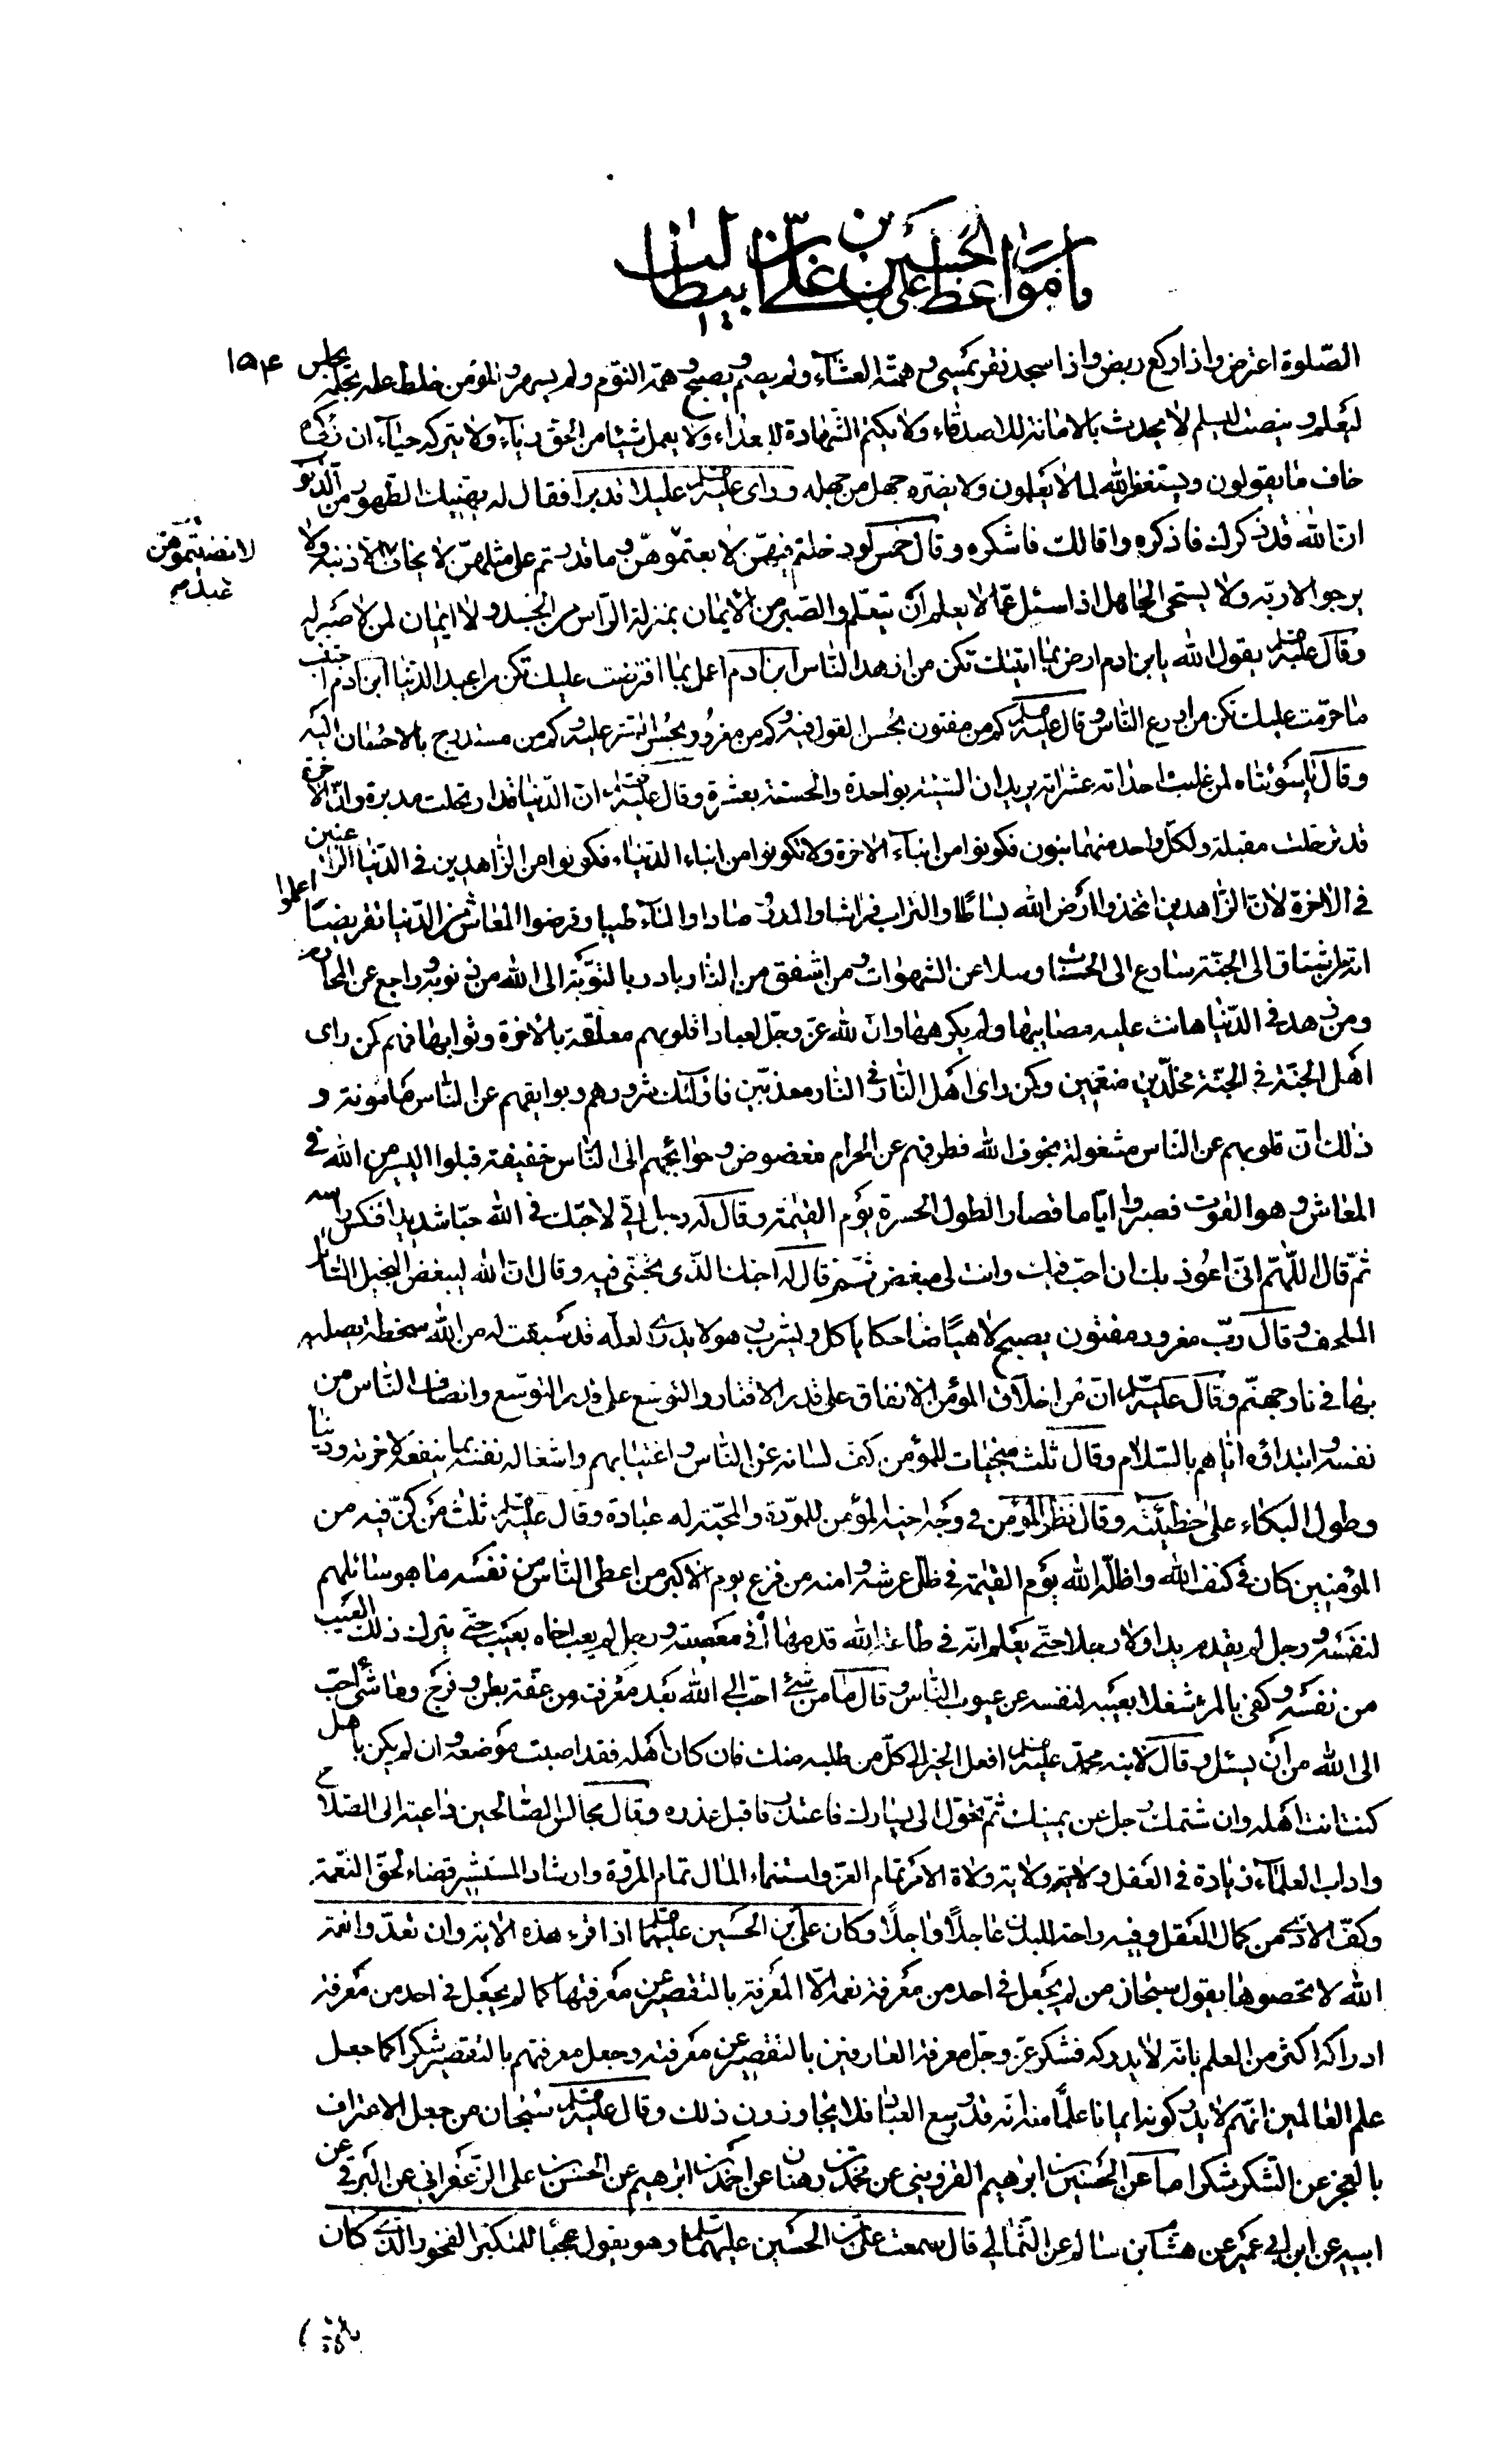 مامن مواعظ علي بن الحسين بن علي بن ابيطالب
الصّلوة اعترض واذا ركع ربض واذا سجد نقر يمسى وهمّته العشآء ولم يصم ويصبح وهمّه النوم ولم يسهر والمؤمن خلط عمله بحلمه يجلس ١٥٤
ليعلم وينصت ليسلم لا يحدث بالامانة للاصدقاء ولا يكتم الشهادة للبعداء ولا يعمل شيئا من الحق رياء ولا يتركه حياء ان زكّى
خاف ممّا يقولون ويستغفر الله لما لا يعلمون ولا يضرّه جهل من جهله وراى عليه السلم عليلا قد برا فقال له يهنيك الطّهور من الذنوب
انّ الله قد ذكرك فاذكره واقالك فاشكره وقال خمس لو رحلتم فيهنّ لا وما قدرتم على مثلهنّ لا يخاف عبد الا ذنبه ولا
لانضيتموهن
عبد
يرجو الا ربّه ولا يستحى الجاهل اذا سئل عمّا لا يعلم ان يتعلّم والصّبر من الايمان بمنزلة الرّاس من الجسد ولا ايمان لمن لا صبر له
وقال عليه السلم يقول الله يا بن ادم ارض بما اتيتك تكن من ازهد النّاس ابن ادم اعمل بما افترضت عليك تكن من اعبد النّاس ابن ادم اجتنب
ما حرّمت عليك تكن من اورع النّاس وقال عليه السلم كم من مفتون بحسن القول فيه وكم من مغرور بحسن السّتر عليه وكم من مستدرج بالاحسان اليه
وقال يا سوئتاه لمن غلبت احداته عشراته يريد ان السّيّئة بواحدة والحسنة بعشرة وقال عليه السلم انّ الدّنيا قد ارتحلت مدبرة وانّ الاخرة
قد ترحّلت مقبلة ولكلّ واحد منهما بنون فكونوا من ابناء الاخرة ولا تكونوا من ابناء الدّنيا فكونوا من الزّاهدين في الدّنيا الرّاغبين
في الاخرة لانّ الزّاهدين اتخذوا ارض الله بساطا والتراب فراشا والمدر وسادا والمآء طيبا وقرضوا المعاش من الدّنيا تقريضا اعلموا
انه من اشتاق الى الجنّة سارع الى الحسنات وسلا عن الشهوات ومن اشفق من النّار بادر بالتوبة الى الله من ذنوبه وراجع عن المحارم
ومن زهد في الدّنيا هانت عليه مصايبها ولم يكرهها وانّ لله عزّ وجلّ لعبادا قلوبهم معلّقة بالاخرة وثوابها فهم كمن راى
اهل الجنّة في الجنّة مخلّدين منعّمين وكمن راى اهل النّار في النّار معذّبين فاولئك شرورهم وبوايقهم عن النّاس مامونة و
ذلك انّ قلوبهم عن النّاس مشغولة بخوف الله فطرفهم عن الحرام مغضوض وحوائجهم الى النّاس خفيفة قبلوا اليسير من الله في
المعاش وهو القوت فصبروا ايّاما قصارا لطول الحسرة يوم القيمة وقال له رجل انّى لاحبّك في الله حبّا شديدا فنكس راسه
ثمّ قال اللّهمّ انّى اعوذ بك ان احبّ فيك وانت لى مبغض ثمّ قال له احبّك للّذى تحبّنى فيه وقال انّ الله ليبغض البخيل السّائل
الملحف وقال ربّ مغرور مفتون يصبح لاهيا ضاحكا ياكل ويشرب وهو لا يدرى لعلّه قد سبقت له من الله سخطة يصلى
بها في نار جهنّم وقال عليه السلم انّ من اخلاق المؤمن الانفاق على قدر الاقتار والتوسّع على قدر التوسّع وانصاف النّاس من
نفسه وابتداؤه ايّاهم بالسّلام وقال ثلث منجيات للمؤمن كفّ لسانه عن النّاس واغتيابهم واشغاله نفسه بما ينفعه لاخرته ودنياه
وطول البكاء على خطيئته وقال نظر المؤمن في وجه اخيه المؤمن للمودّة والمحبّة له عبادة وقال عليه السلم ثلث من كنّ فيه من
المؤمنين كان في كنف الله واظلّه الله يوم القيمة في ظلّ عرشه وامنه من فزع يوم الاكبر من اعطى النّاس من نفسه ما هو سائلهم
لنفسه ورجل لم يقدم يدا ولا رجلا حتّى يعلم انّه في طاعة الله قدمها او في معصيته ورجل لم يعب اخاه بعيب حتّى يترك ذلك العيب
من نفسه وكفى بالمرء شغلا بعيبه لنفسه عن عيوب النّاس وقال ما من شئ احبّ الى الله بعد معرفته من عفّة بطن وفرج وما شئ احبّ
الى الله من ان يسئل وقال لابنه محمّد عليه السلم افعل الخير الى كلّ من طلبه منك فان كان اهله فقد اصبت موضعه وان لم يكن باهل
كنت انت اهله وان شتمك رجل عن يمينك ثمّ تحوّل الى يسارك فاعتذر فاقبل عذره وقال مجالس الصّالحين داعية الى الصّلاح
واداب العلمآء زيادة في العقل وولاية ولاة الامر تمام العزّ واستنماء المال تمام المروّة وارشاد المستشير قضاء لحق النّعمة
وكفّ الاذى من كمال العقل وفيه راحة للبدن عاجلا واجلا وكان علىّ بن الحسين عليهما السلم اذا قرء هذه الاية وان تعدّوا نعمة
الله لا تحصوها يقول سبحان من لم يجعل في احد من معرفة نعمه الّا المعرفة بالتقصير عن معرفتها كما لم يجعل في احد من معرفة
ادراكه اكثر من العلم بانّه لا يدركه فشكر عزّ وجلّ معرفة العارفين بالتقصير عن معرفته وجعل معرفتهم بالتقصير شكرا كما جعل
علم العالمين انّهم لا يدركونه ايمانا علما منه انّه قد وسع العباد فلا يتجاوزون ذلك وقال عليه السلم سبحان من جعل الاعتراف
بالعجز عن الشّكر شكرا ما عن الحسين بن ابرهيم القزويني عن محمّد بن وهبان عن احمد بن ابرهيم عن الحسن بن على الزّعفراني عن البرقى عن
ابيه عن ابن ابى عمير عن هشام بن سالم عن الثّمالى قال سمعت على بن الحسين عليهما السلم وهو يقول عجبا للمتكبّر الفخور الّذى كان